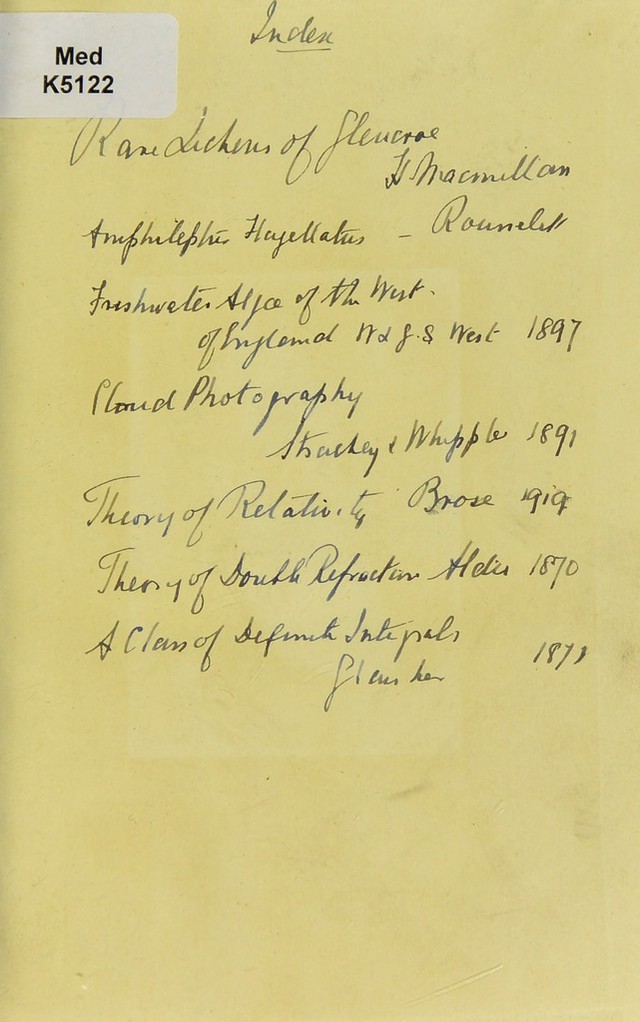 Med
K5122
Index
Rare Lichens of Glencroe
H Macmillan
Amphileptus Flagellatus - Rousselet
Freshwater Algæ of the West
of England W & G. S West 1897
Cloud Photography
Strachey & Whipple 1891
Theory of Relativity Brose 1919
Theory of Double Refraction Aldis 1870
A Class of Definite Integrals
Glaisher 1871